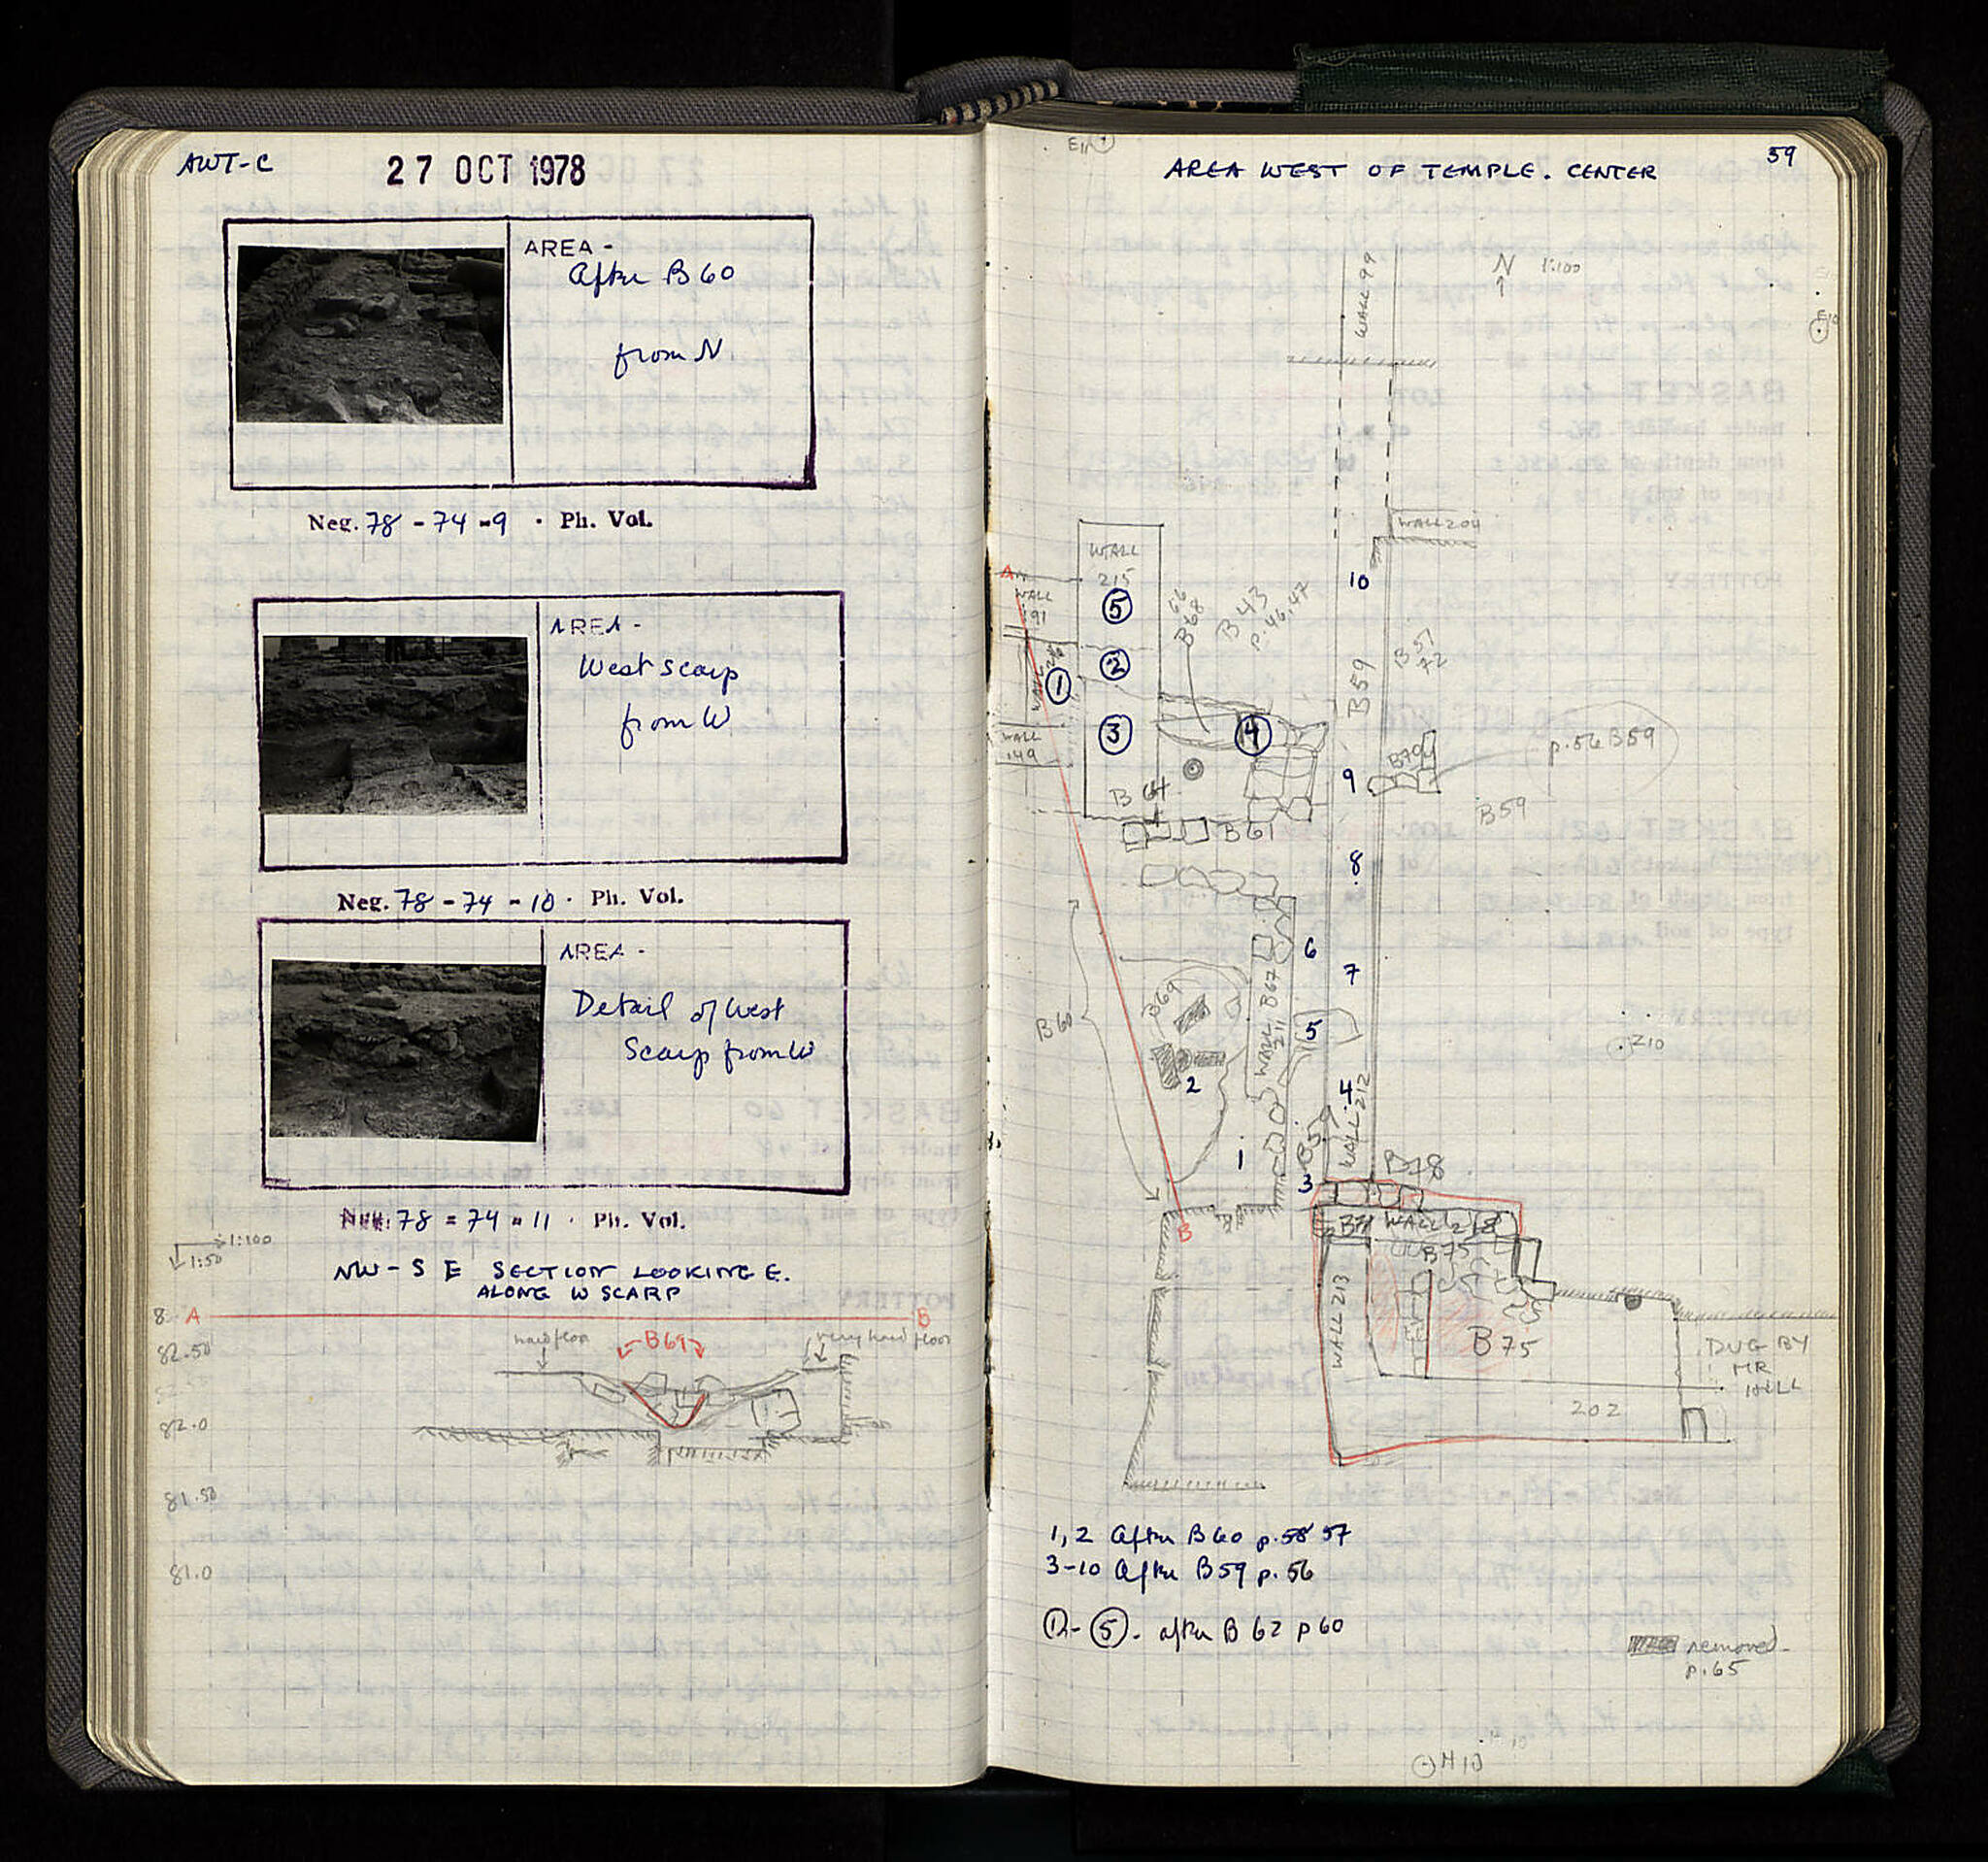 AWT-C
27 OCT 1978
AREA -
After B 60
from N
Neg. 78 - 74 - 9 · Ph. Vol.
AREA -
West scarp
from W
Neg. 78 - 74 - 10 · Ph. Vol.
AREA -
Detail of West
Scarp from W
78 = 74 - 11 · Ph. Vol.
1:100
1:50
NW - S E SECTION LOOKING E.
ALONG W SCARP
A
B
hard floor
B69
very hard floor
82.50
82.0
81.50
81.0
59
AREA WEST OF TEMPLE. CENTER
E11
N 1:100
WALL 99
E10
WALL 204
WALL
215
A
WALL
191
5
B 66
B68
B 43
p. 46, 47
10
B 57
72
2
1
WALL
B59
3
4
WALL
149
p. 56 B59
9
B 64
B 61
B59
8
6
7
B69
B60
WALL 211
B67
5
210
2
4
WALL 212
1
B59
3
B78
B
B71 WALL 218
B75
WALL 213
B 75
DUG BY
MR
HILL
202
1, 2 After B 60 p. 58 57
3-10 After B 59 p. 56
1 - 5 - after B 62 p 60
removed
p. 65
H10